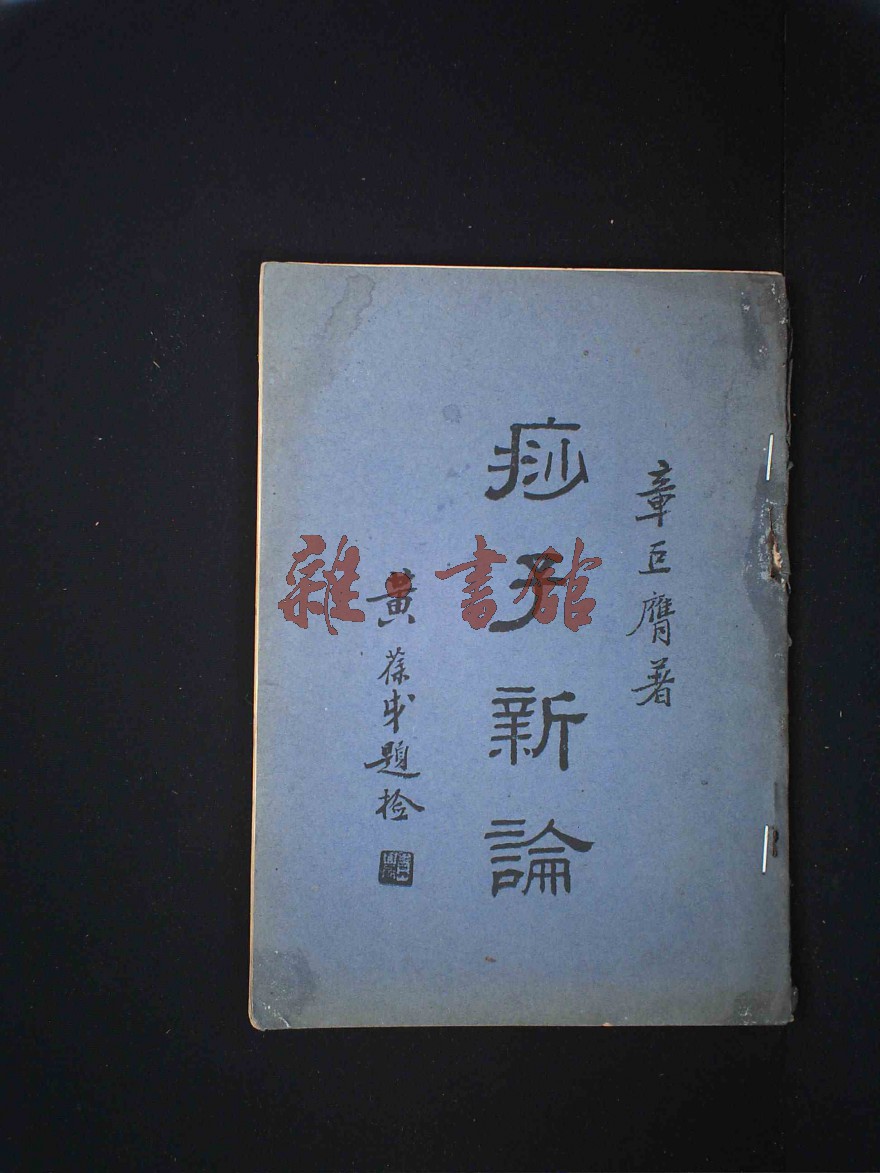 章巨膺著
痧子新論
黃葆戉題檢
雜·書館